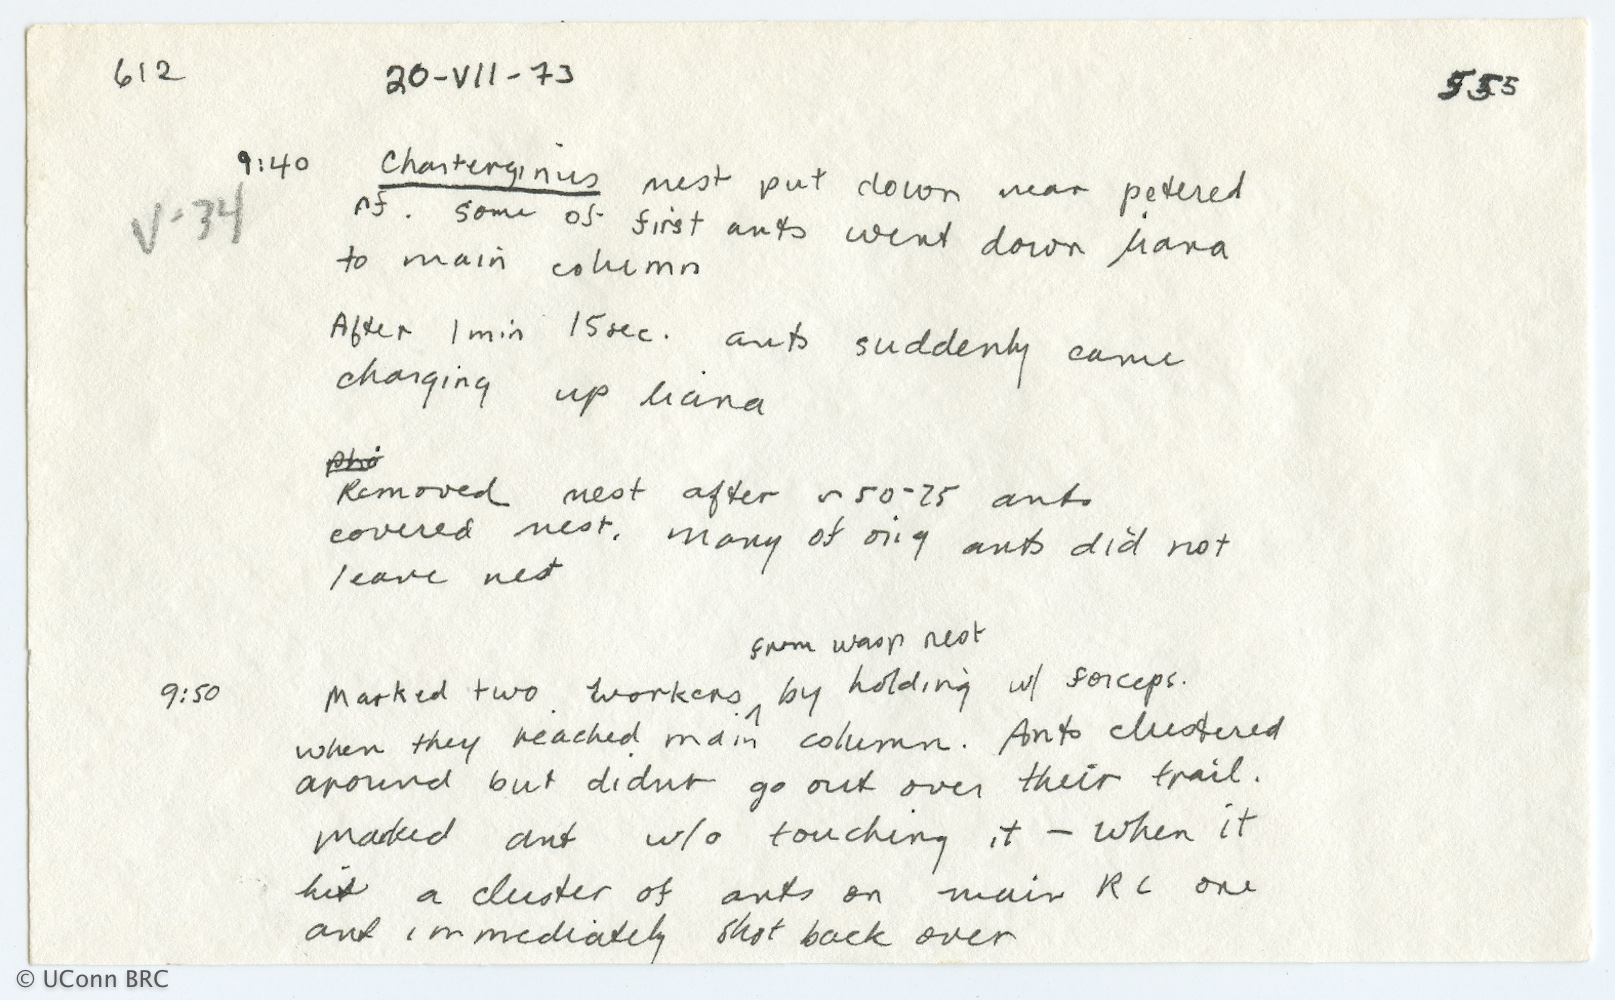 612 20-VII-73 555
9:40 Charterginus nest put down near petered
V-34 rf. some of first ants went down liana
to main column
After 1 min 15 sec. ants suddenly came
charging up liana
pho
Removed nest after ~ 50-75 ants
covered nest. Many of orig ants did not
leave nest
from wasp nest
9:50 Marked two workers ^ by holding w/ forceps.
when they reached main column. Ants clustered
around but didnt go out over their trail.
Marked ant w/o touching it - when it
hit a cluster of ants on main RC one
ant immediately shot back over
© UConn BRC